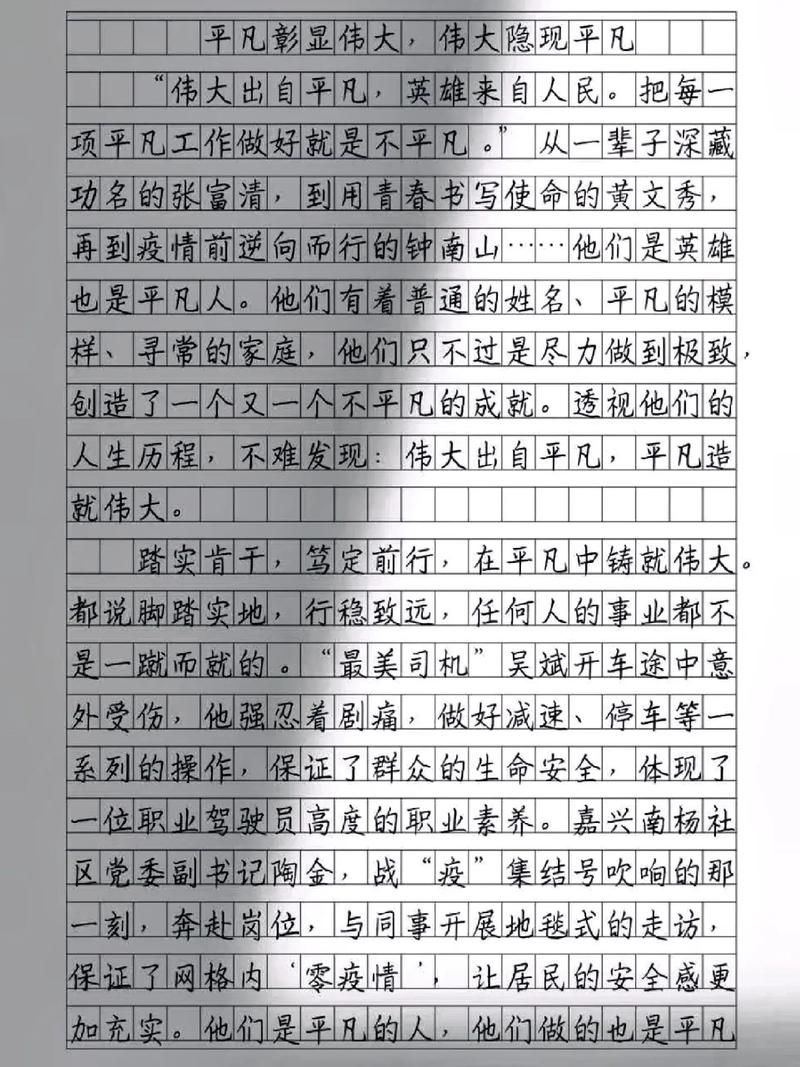 平凡彰显伟大，伟大隐现平凡
“伟大出自平凡，英雄来自人民。把每一
项平凡工作做好就是不平凡。”从一辈子深藏
功名的张富清，到用青春书写使命的黄文秀，
再到疫情前逆向而行的钟南山……他们是英雄
也是平凡人。他们有着普通的姓名、平凡的模
样、寻常的家庭，他们只不过是尽力做到极致，
创造了一个又一个不平凡的成就。透视他们的
人生历程，不难发现：伟大出自平凡，平凡造
就伟大。
踏实肯干，笃定前行，在平凡中铸就伟大。
都说脚踏实地，行稳致远，任何人的事业都不
是一蹴而就的。“最美司机”吴斌开车途中意
外受伤，他强忍着剧痛，做好减速、停车等一
系列的操作，保证了群众的生命安全，体现了
一位职业驾驶员高度的职业素养。嘉兴南杨社
区党委副书记陶金，战“疫”集结号吹响的那
一刻，奔赴岗位，与同事开展地毯式的走访，
保证了网格内‘零疫情’，让居民的安全感更
加充实。他们是平凡的人，他们做的也是平凡